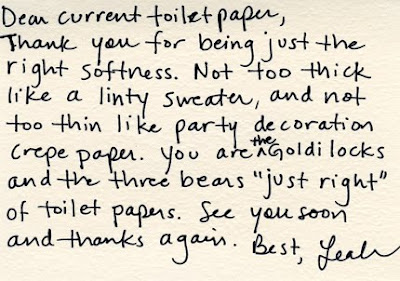 Dear current toilet paper,
Thank you for being just the
right softness. Not too thick
like a linty sweater, and not
too thin like party decoration
crepe paper. You are the Goldilocks
and the three bears "just right"
of toilet papers. See you soon
and thanks again. Best, Leah